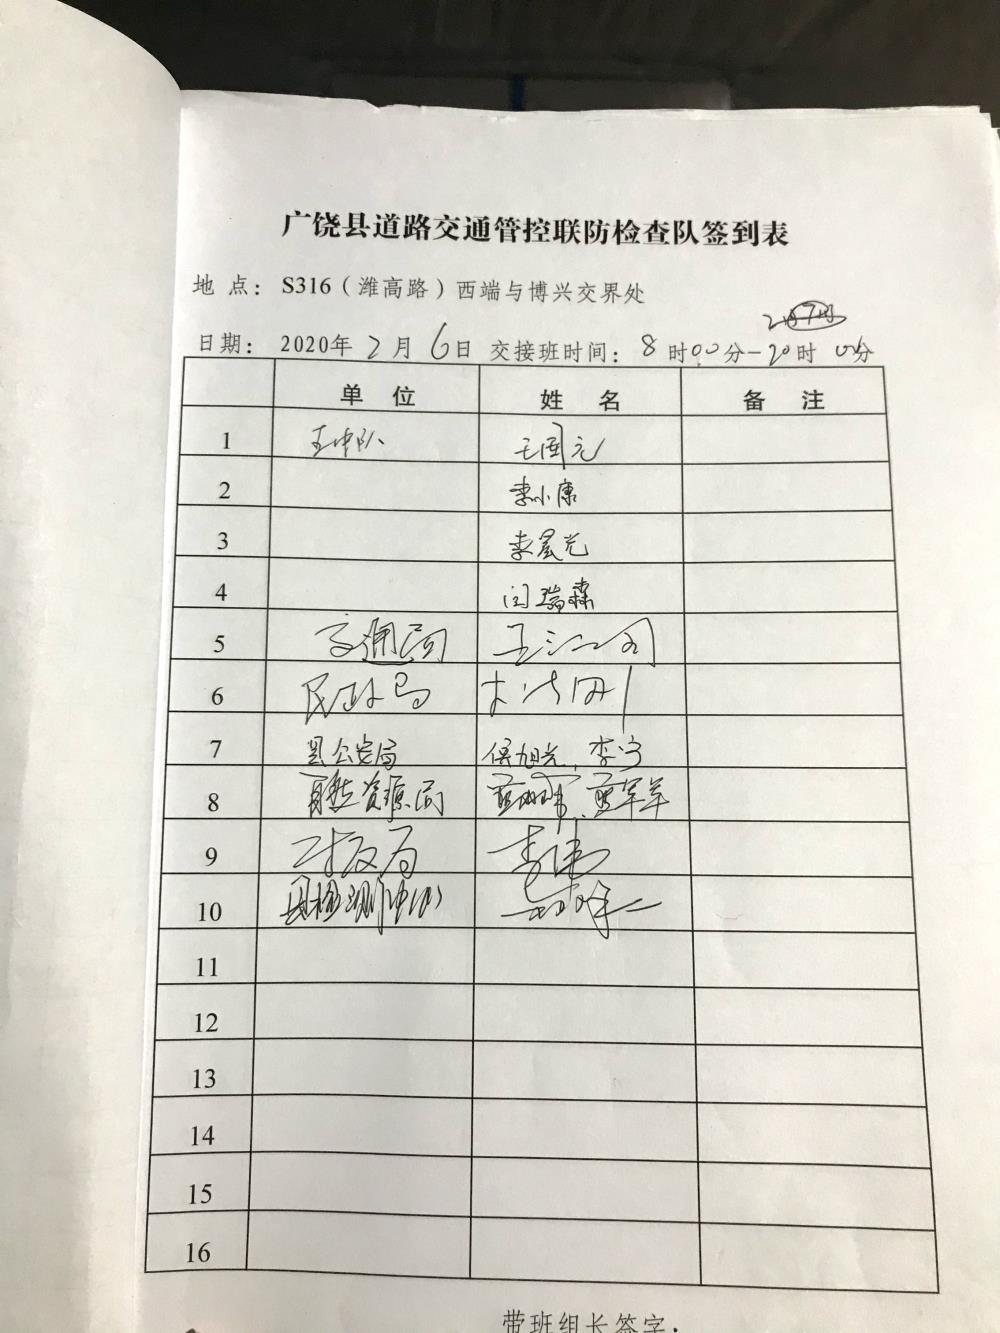 广饶县道路交通管控联防检查队签到表
地点：S316（潍高路）西端与博兴交界处
2月7日
日期：2020年2月6日 交接班时间：8时00分－20时00分
单位 姓名 备注
1 王国元
2 李小康
3 李晨光
4 闫瑞森
5 交通局
6 民政局
7 县公安局 侯旭光、李宁
8 自然资源局
9 财政局 李伟
10
11
12
13
14
15
16
带班组长签字：